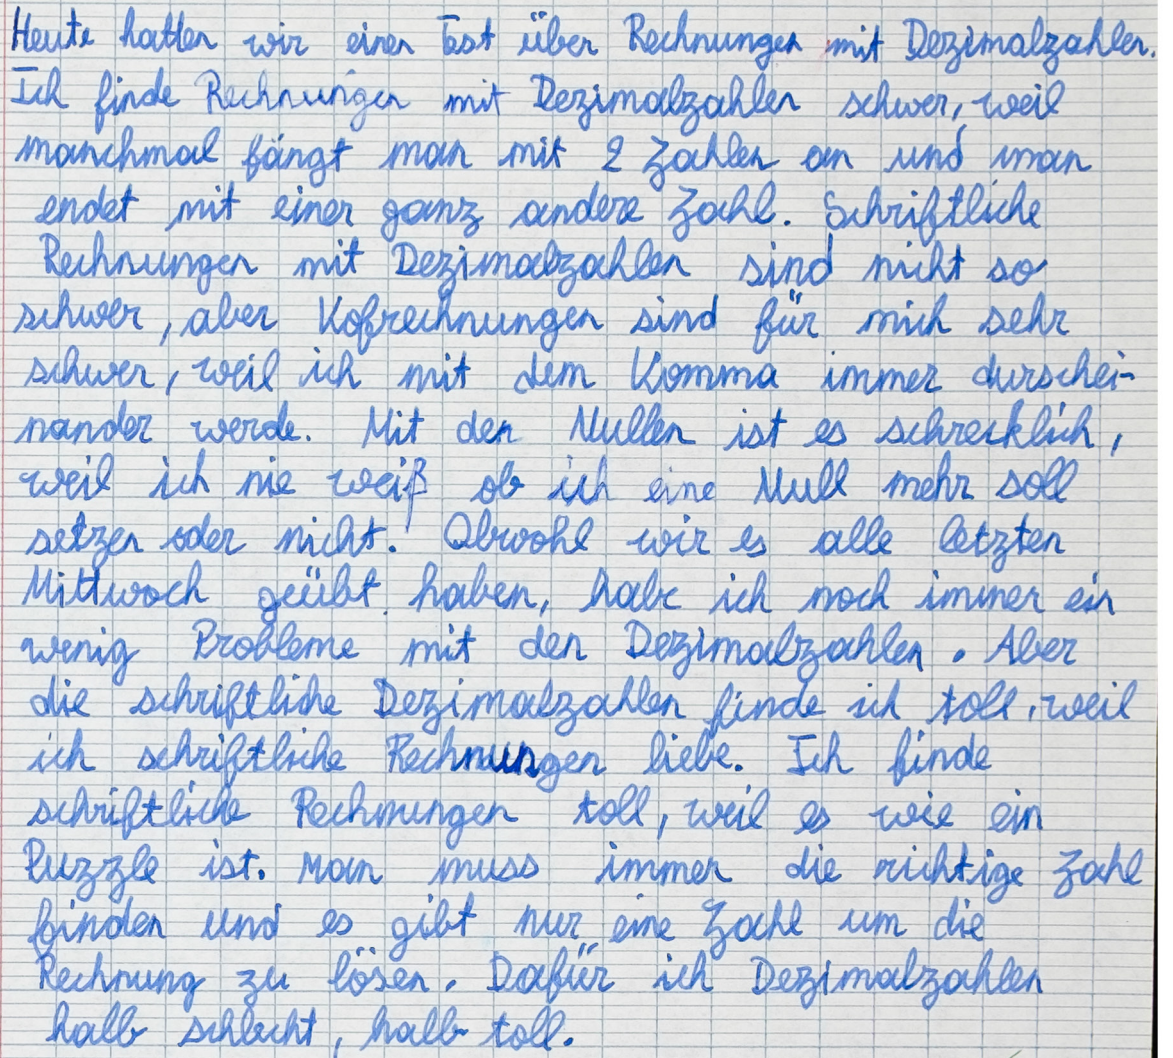 Heute hatten wir einen Test über Rechnungen mit Dezimalzahlen.
Ich finde Rechnungen mit Dezimalzahlen schwer, weil
manchmal fängt man mit 2 Zahlen an und man
endet mit einer ganz andere Zahl. Schriftliche
Rechnungen mit Dezimalzahlen sind nicht so
schwer, aber Kofrechnungen sind für mich sehr
schwer, weil ich mit dem Komma immer durschei-
nander werde. Mit den Nullen ist es schrecklich,
weil ich nie weiß ob ich eine Null mehr soll
setzen oder nicht. Obwohl wir es alle letzten
Mittwoch geübt haben, habe ich noch immer ein
wenig Probleme mit den Dezimalzahlen. Aber
die schriftliche Dezimalzahlen finde ich toll, weil
ich schriftliche Rechnungen liebe. Ich finde
schriftliche Rechnungen toll, weil es wie ein
Puzzle ist. Man muss immer die richtige Zahl
finden und es gibt nur eine Zahl um die
Rechnung zu lösen. Dafür ich Dezimalzahlen
halb schlecht, halb toll.